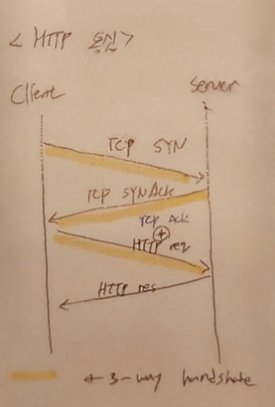 < HTTP 통신 >
Client
Server
TCP SYN
TCP SYNAck
TCP Ack
+
HTTP req
HTTP res
← 3-way handshake